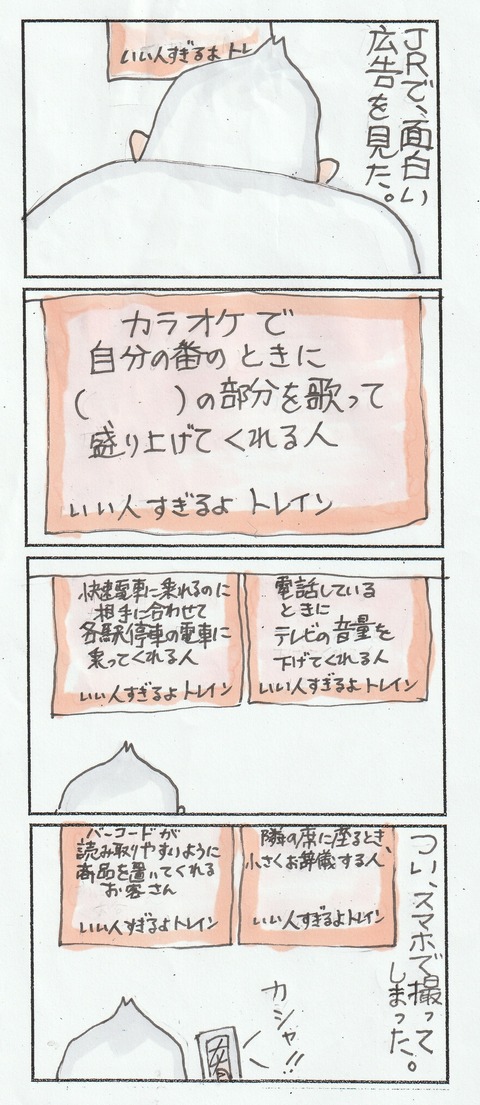 JRで、面白い
広告を見た。
いい人すぎるよトレ
カラオケで
自分の番のときに
(　　　)の部分を歌って
盛り上げてくれる人
いい人すぎるよ トレイン
快速電車に乗れるのに
相手に合わせて
各駅停車の電車に
乗ってくれる人
いい人すぎるよ トレイン
電話している
ときに
テレビの音量を
下げてくれる人
いい人すぎるよ トレイン
つい、スマホで撮って
しまった。
バーコードが
読み取りやすいように
商品を置いてくれる
お客さん
いい人すぎるよトレイン
隣の席に座るとき、
小さくお辞儀する人
いい人すぎるよトレイン
カシャ!!